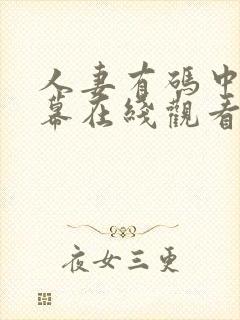 人妻有碼中
幕在綫觀看
夜女三更